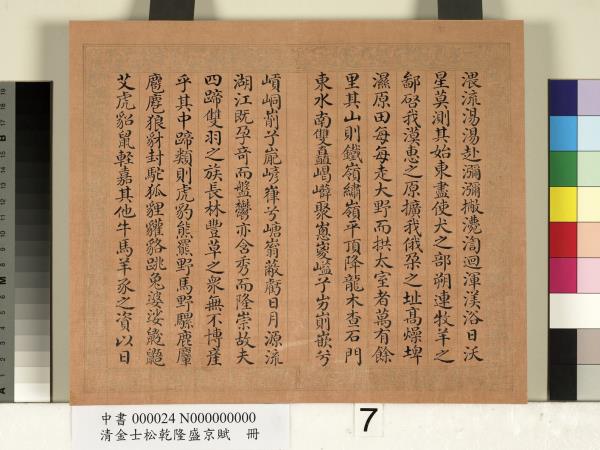 流湯湯赴瀰瀰撇滮迴渾渼浴日沃
星莫測其始東盡使犬之部朔連牧羊之
鄙啓我漠惠之原擴我俄朶之址高燥埤
濕原田每每走大野而拱太室者萬有餘
里其山則鐵嶺繡嶺平頂降龍木查石門
東水南雙矗崼巑聚崽嵏嵫屴崱嵌兮
崝峒崱屴巃嵸㠑兮嵣嵡蔽虧日月源流
湖江既孕奇而盤鬱亦含秀而隆崇故夫
四蹄雙羽之族長林豐草之衆無不博產
乎其中蹄類則虎豹熊羆野馬野騾鹿麞
麅麂狼豺封駝狐狸獾貉跳兔婆娑
艾虎貂鼠輕嘉其他牛馬羊豕之資以日
中書 000024 N000000000
清金士松乾隆盛京賦 冊
7